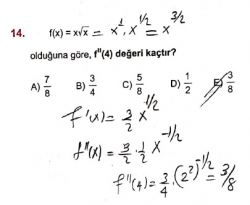 14. f(x) = x√x = x¹ · x^1/2 = x^3/2
olduğuna göre, f''(4) değeri kaçtır?
A) 7/8 B) 3/4 C) 5/8 D) 1/2 E) 3/8
f'(x) = 3/2 x^1/2
f''(x) = 3/2 · 1/2 x^-1/2
f''(4) = 3/4 · (2²)^-1/2 = 3/8